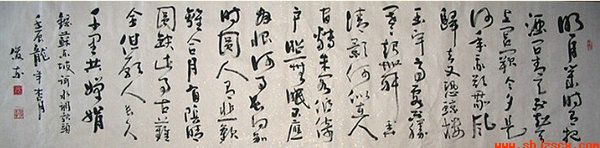 明月幾時有把
酒問青天不知天
上宮闕今夕是
何年我欲乘風
歸去又恐瓊樓
玉宇高處不勝
寒起舞弄
清影何似在人
間轉朱閣低綺
戶照無眠不應
有恨何事長向別
時圓人有悲歡
離合月有陰晴
圓缺此事古難
全但願人長久
千里共嬋娟
錄蘇東坡詞水調歌頭
壬辰龍年春月